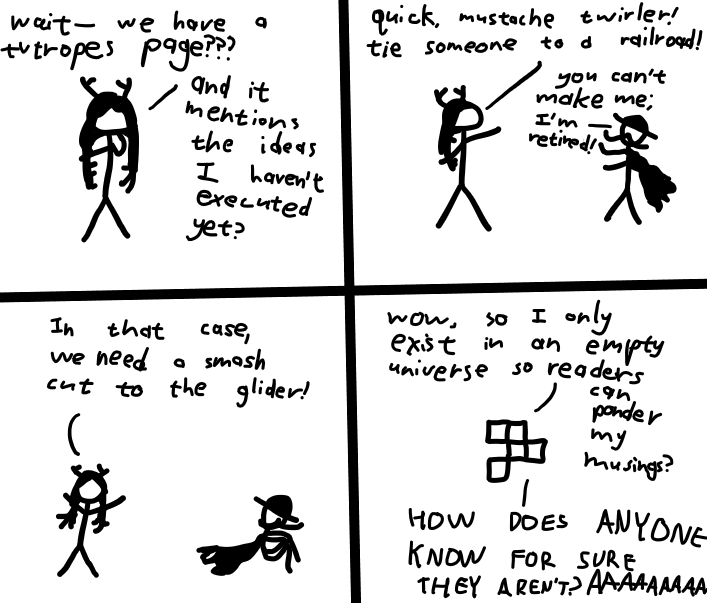 wait— we have a
tvtropes page???
and it
mentions
the ideas
I haven't
executed
yet?
quick, mustache twirler!
tie someone to a railroad!
you can't
make me;
I'm
retired!
In that case,
we need a smash
cut to the glider!
wow, so I only
exist in an empty
universe so readers
can
ponder
my
musings?
HOW DOES ANYONE
KNOW FOR SURE
THEY AREN'T? AAAAAAAAA